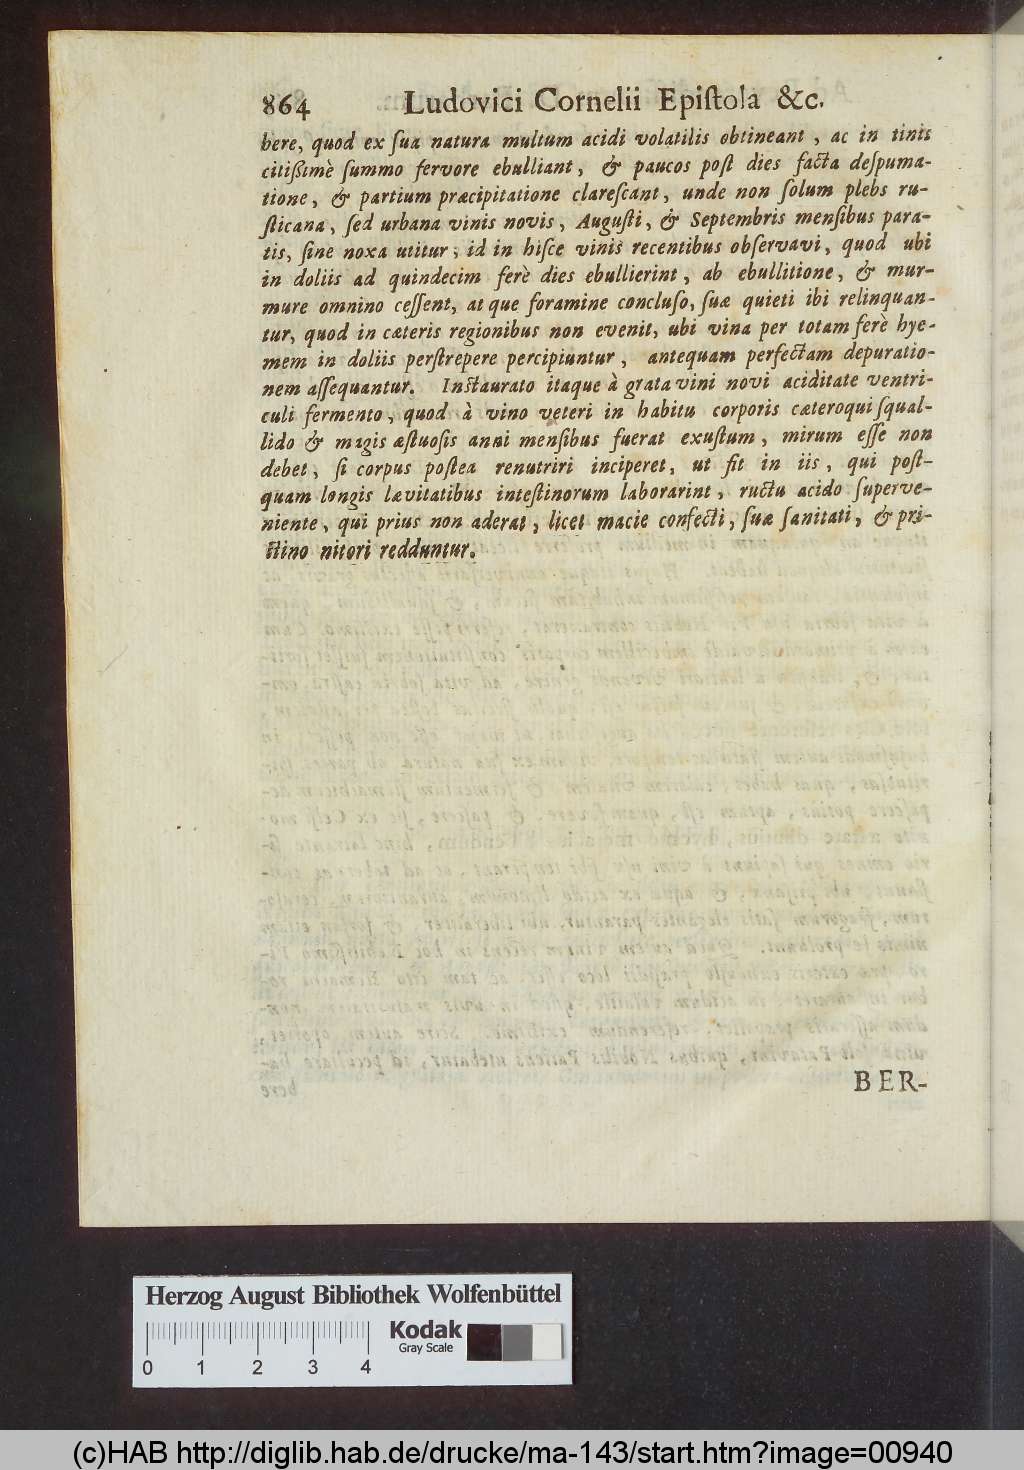 864 Ludovici Cornelii Epiſtola &c.
bere, quod ex ſua natura multum acidi volatilis obtineant, ac in tinis
citiſſimè ſummo fervore ebulliant, & paucos poſt dies facta deſpuma-
tione, & partium præcipitatione clareſcant, unde non ſolum plebs ru-
ſticana, ſed urbana vinis novis, Auguſti, & Septembris menſibus para-
tis, ſine noxa utitur; id in hiſce vinis recentibus obſervavi, quod ubi
in doliis ad quindecim ferè dies ebullierint, ab ebullitione, & mur-
mure omnino ceſſent, atque foramine concluſo, ſuæ quieti ibi relinquan-
tur, quod in cæteris regionibus non evenit, ubi vina per totam ferè hye-
mem in doliis perſtrepere percipiuntur, antequam perfectam depuratio-
nem aſſequantur. Inſtaurato itaque à grata vini novi aciditate ventri-
culi fermento, quod à vino veteri in habitu corporis cæteroqui ſqual-
lido & magis æſtuoſis anni menſibus fuerat exuſtum, mirum eſſe non
debet, ſi corpus poſtea renutriri inciperet, ut fit in iis, qui poſt-
quam longis lævitatibus inteſtinorum laborarint, ructu acido ſuperve-
niente, qui prius non aderat, licet macie confecti, ſuæ ſanitati, & pri-
ſtino nitori redduntur.
BER-
Herzog August Bibliothek Wolfenbüttel
Kodak
Gray Scale
0 1 2 3 4
(c)HAB http://diglib.hab.de/drucke/ma-143/start.htm?image=00940